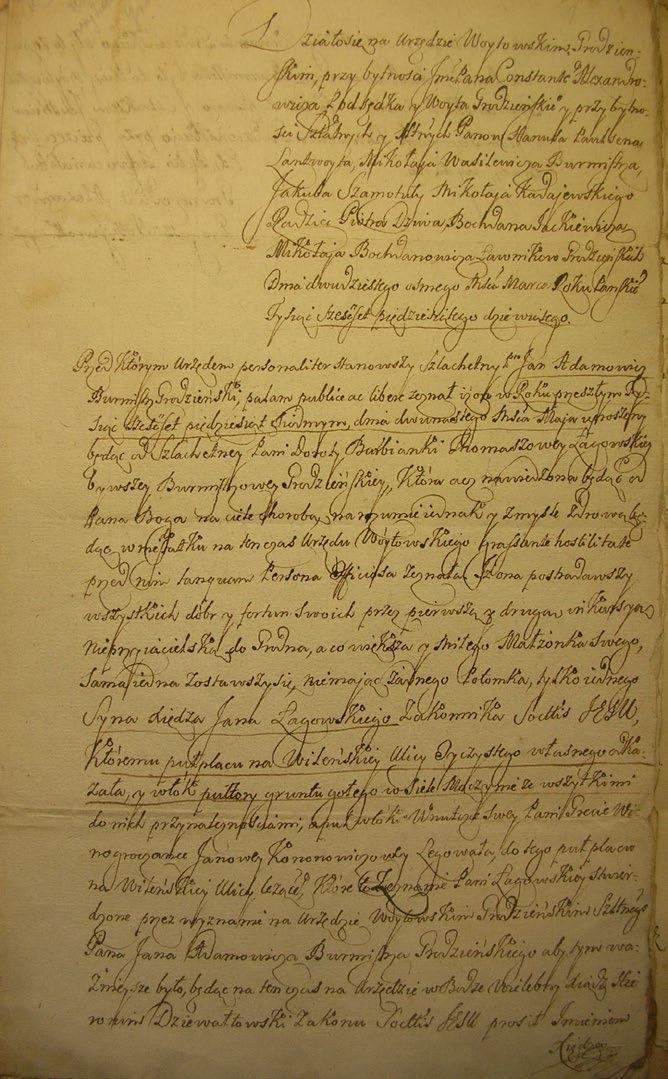 Działosie na Urzędzie Woytowskim Grodzien-
skim, przy bytnosci Jmć Pana Constante° Alexandro-
wicza Podsędka y Woyta Grodzienskie° y przy bytno-
sci Szlachtnych y Panow Hanusa Paulsena
Lantwoyta, Mikołaja Wasilewicza Burmistrza,
Jakuba Szamotuły Mikołaja Kadajewskiego
Radzicc Piotra Dziwa, Bochdana Jackiewicza
Mikołaja Bochdanowicza Ławnikow Grodzienskich
Dnia dwudziestego osmego Msca Marca Roku Panskie°
Tysiąc szescset piędziesiątego dziewiątego.
Przed Ktorym Urzędem personaliter stanowszy Szlachetny Pan Jan Adamowicz
Burmistrz Grodzienski, palam publice ac libere zeznał iż on w Roku przeszłym Ty-
siąc szescset piędziesiąt siudmym, dnia dwunastego Msca Maja uproszony
będąc od Szlachetney Pani Doroty Butbianki Thomaszowey Łagowskiey
bywszey Burmistrzowey Grodzienskiey, Ktora acz nawiedzona będąc od
Pana Boga na ciele chorobą, na rozumie iednak y zmysle zdrowa bę-
dąc, w na tenczas Urzędu Woytowskiego grassante hostilitate
przed nim tanquam Persona Officiosa zeznała, iż ona postradawszy
wszystkich dobr y fortun swoich przez pierwszą y drugą inkursyą
nieprzyiacielską do Grodna, a co większa y miłego Małżonka swego,
sama iedna zostawszy się, nie mając żadnego Potomka, tylko iednego
Syna xiędza Jana Łagowskiego Zakonnika Socttis JESU,
Ktoremu puł placu na Wilenskiey Ulicy Oyczystego własnego okka-
zała, y włoki pułtory gruntu gołego w Siele ze wszytkimi
do nich przynaleznosciami, a puł włoki Wnuczce swey Pani Grecie Wi-
nogrocance Janowey Kononowiczowey Legowała, do tego puł placu
na Wilenskiey Ulicy leżące°, Ktore to zeznanie Pani Łagowskiey stwier-
dzone przez wyznanie na Urzędzie Woytowskim Grodzienskim Szltneg°
Pana Jana Adamowicza Burmistrza Grodzienskiego aby tym wa-
żnieysze było, będąc na tenczas na Urzędzie w Radzie Wielebny xiądz Hie-
ronim Dziewałtowski Zakonu Socttis JESU prosił Imieniem
xiędza